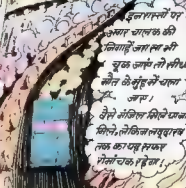 इन रास्तों पर
अगर चालक की
निगाहें जरा सी भी
चूक जाएं तो सीधे
मौत के मुंह में चला
जाए।
वैसे मंजिल मिले या ना
मिले, लेकिन लद्दाख
तक का यह सफर
रोमांचक रहेगा।